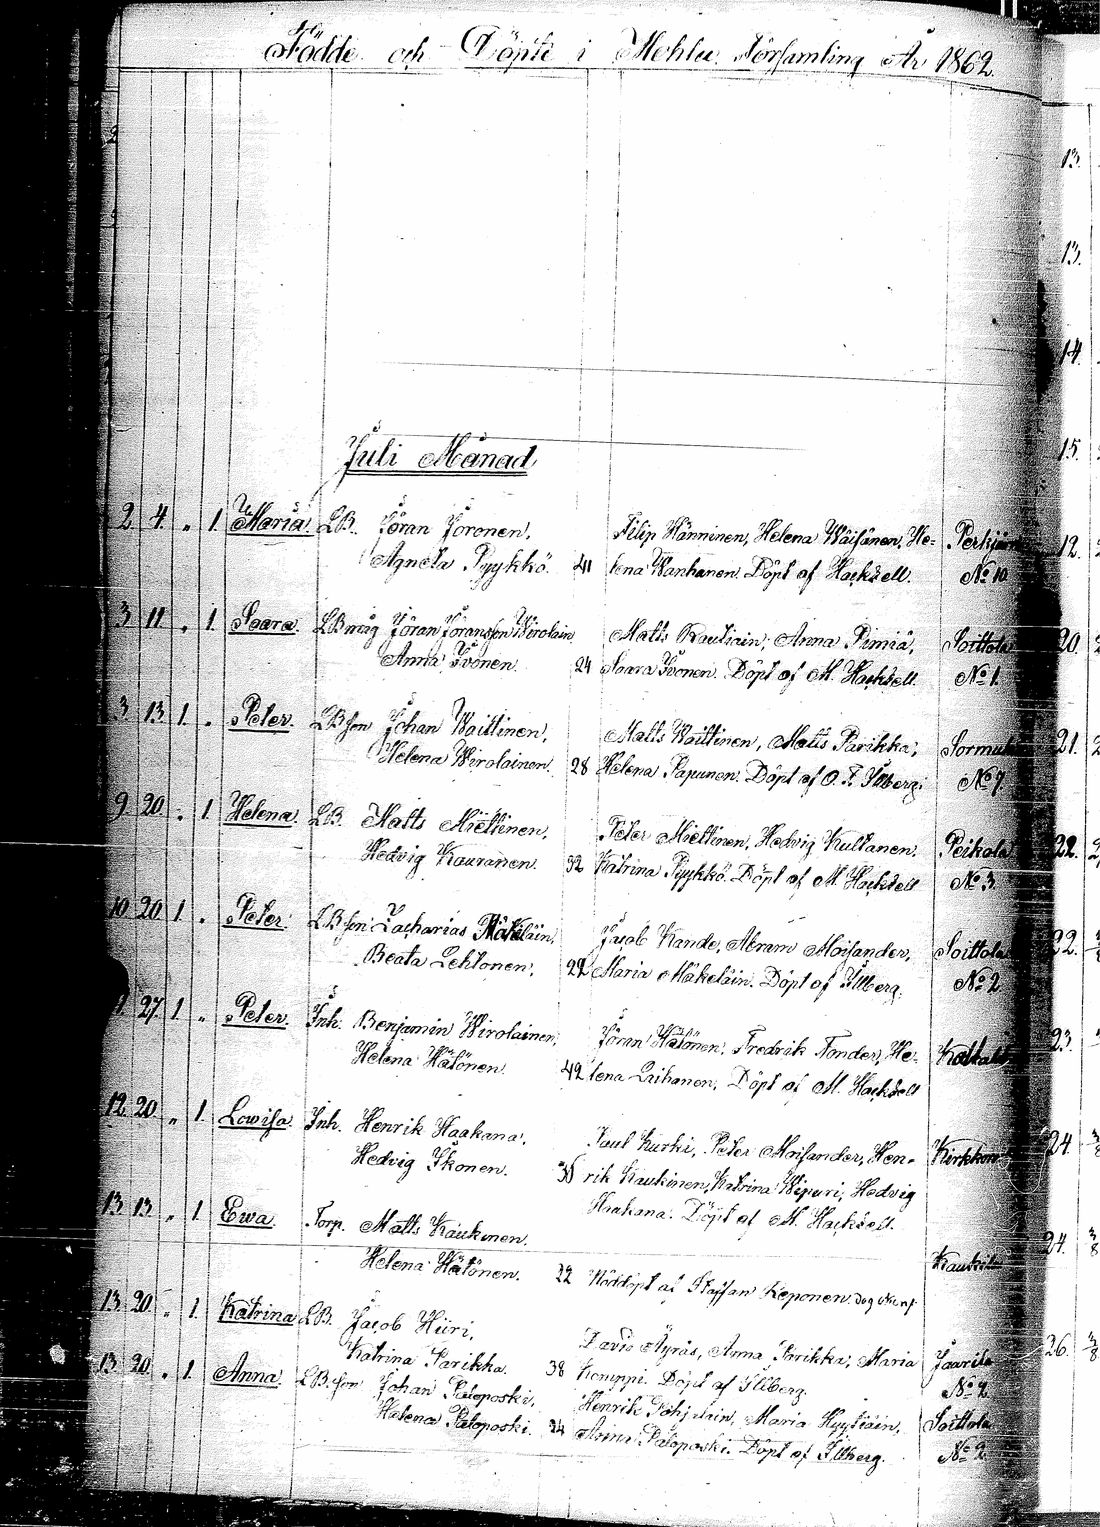 Födde och Döpte i Mohla Församling År 1862.
Juli Månad.
2 4 „ 1. Maria. LB. Jöran Joronen, Filip Hänninen, Helena Wäisänen, He-
Agneta Pyykkö. 41 lena Wanhanen. Döpt af Hackzell. No 10.
3 11 „ 1. Saara. LB måg Jöran Jöransson Wirolain Matts Rautiain, Anna Pimiä, Soittola
Anna Ivonen. 24 Saara Ivonen. Döpt af M. Hackzell. No 1.
3 13 1. „ Peter. LB son Johan Waittinen, Matts Waittinen, Matts Parikka,
Helena Wirolainen. 28 Helena Papunen. Döpt af O. F. Illberg. No 7.
9. 20. „ 1. Helena. LB. Matts Miettinen, Peter Miettinen, Hedvig Kultanen. Peikola
Hedvig Kauranen. 32 Katrina Pyykkö. Döpt af M. Hackzell No 3.
10. 20 1. „ Peter. LB son Zacharias Mäkeläin, Jacob Kande, Abram Moisander, Soittola
Beata Lehtonen, 22 Maria Mäkeläin. Döpt af Illberg. No 2
27. 1. „ Peter. Inh. Benjamin Wirolainen, Jöran Hätönen, Fredrik Tonder, He-
Helena Hätönen. 42 lena Laihanen, Döpt af M. Hackzell
12. 20 „ 1. Lowisa. Inh. Henrik Haakana, Paul Kurki, Peter Moisander, Hen-
Hedvig Ikonen. rik Kaukinen, Katrina Wipuri, Hedvig
Haakana. Döpt af M. Hackzell.
13 13 „ 1. Ewa Torp. Matts Kaukinen.
Helena Hätönen. 22 Nöddöpt af Staffan Reponen.
13. 20. „ 1. Katrina LB. Jacob Hiiri, David Äyräs, Anna Parikka, Maria Jaarila
Katrina Parikka. 38 Komppi. Döpt af Illberg. No 2
13. 20. „ 1. Anna. LB. son Johan Paloposki, Henrik Pohjolain, Maria Hyytiäin, Soittola
Helena Paloposki. 34 Anna Paloposki. Döpt af Illberg. No 2.
13.
13.
14.
15.
12.
20.
21.
22.
22.
23.
24
24.
26.